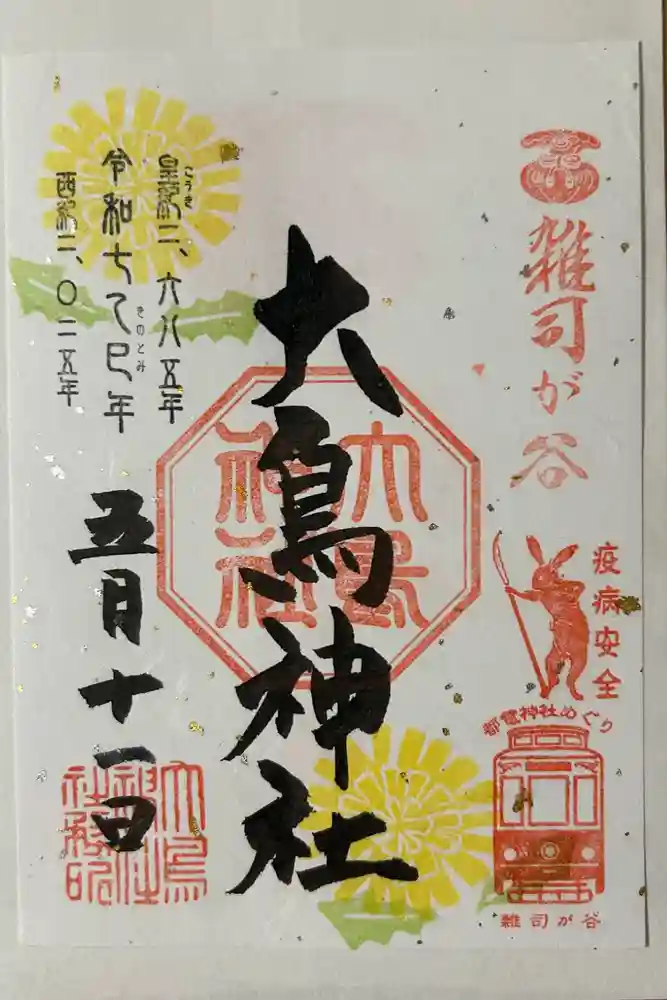 雑司が谷
疫病安全
都電神社めぐり
雑司が谷
大鳥神社
大鳥神社
皇紀二、六八五年
こうき
令和七乙巳年
きのとみ
西紀二、〇二五年
五月十一日
大鳥
神社
社務所印